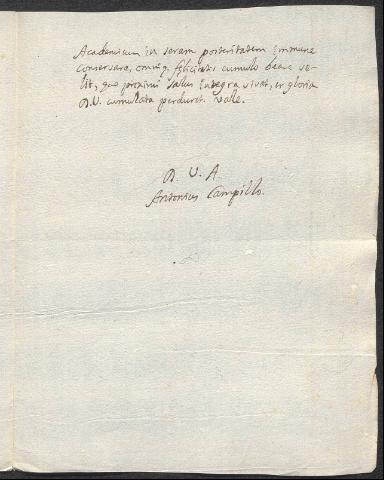 Academicum in seram posteritatem immune
conservare, omniq. felicitatis cumulo beare ve-
lit, quo proximi salus integra vivat, et gloria
D.V. cumulata perduret. Vale.
D. V. A.
Antonius Campillo.